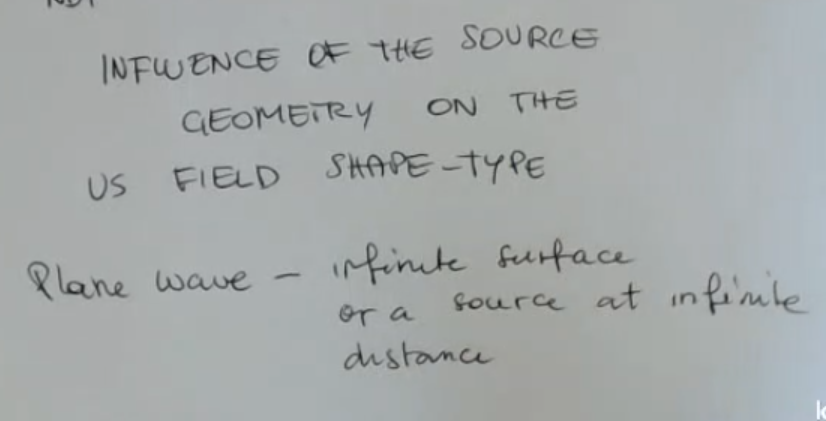 INFLUENCE OF THE SOURCE
GEOMETRY ON THE
US FIELD SHAPE-TYPE
Plane wave - infinite surface
or a source at infinite
distance